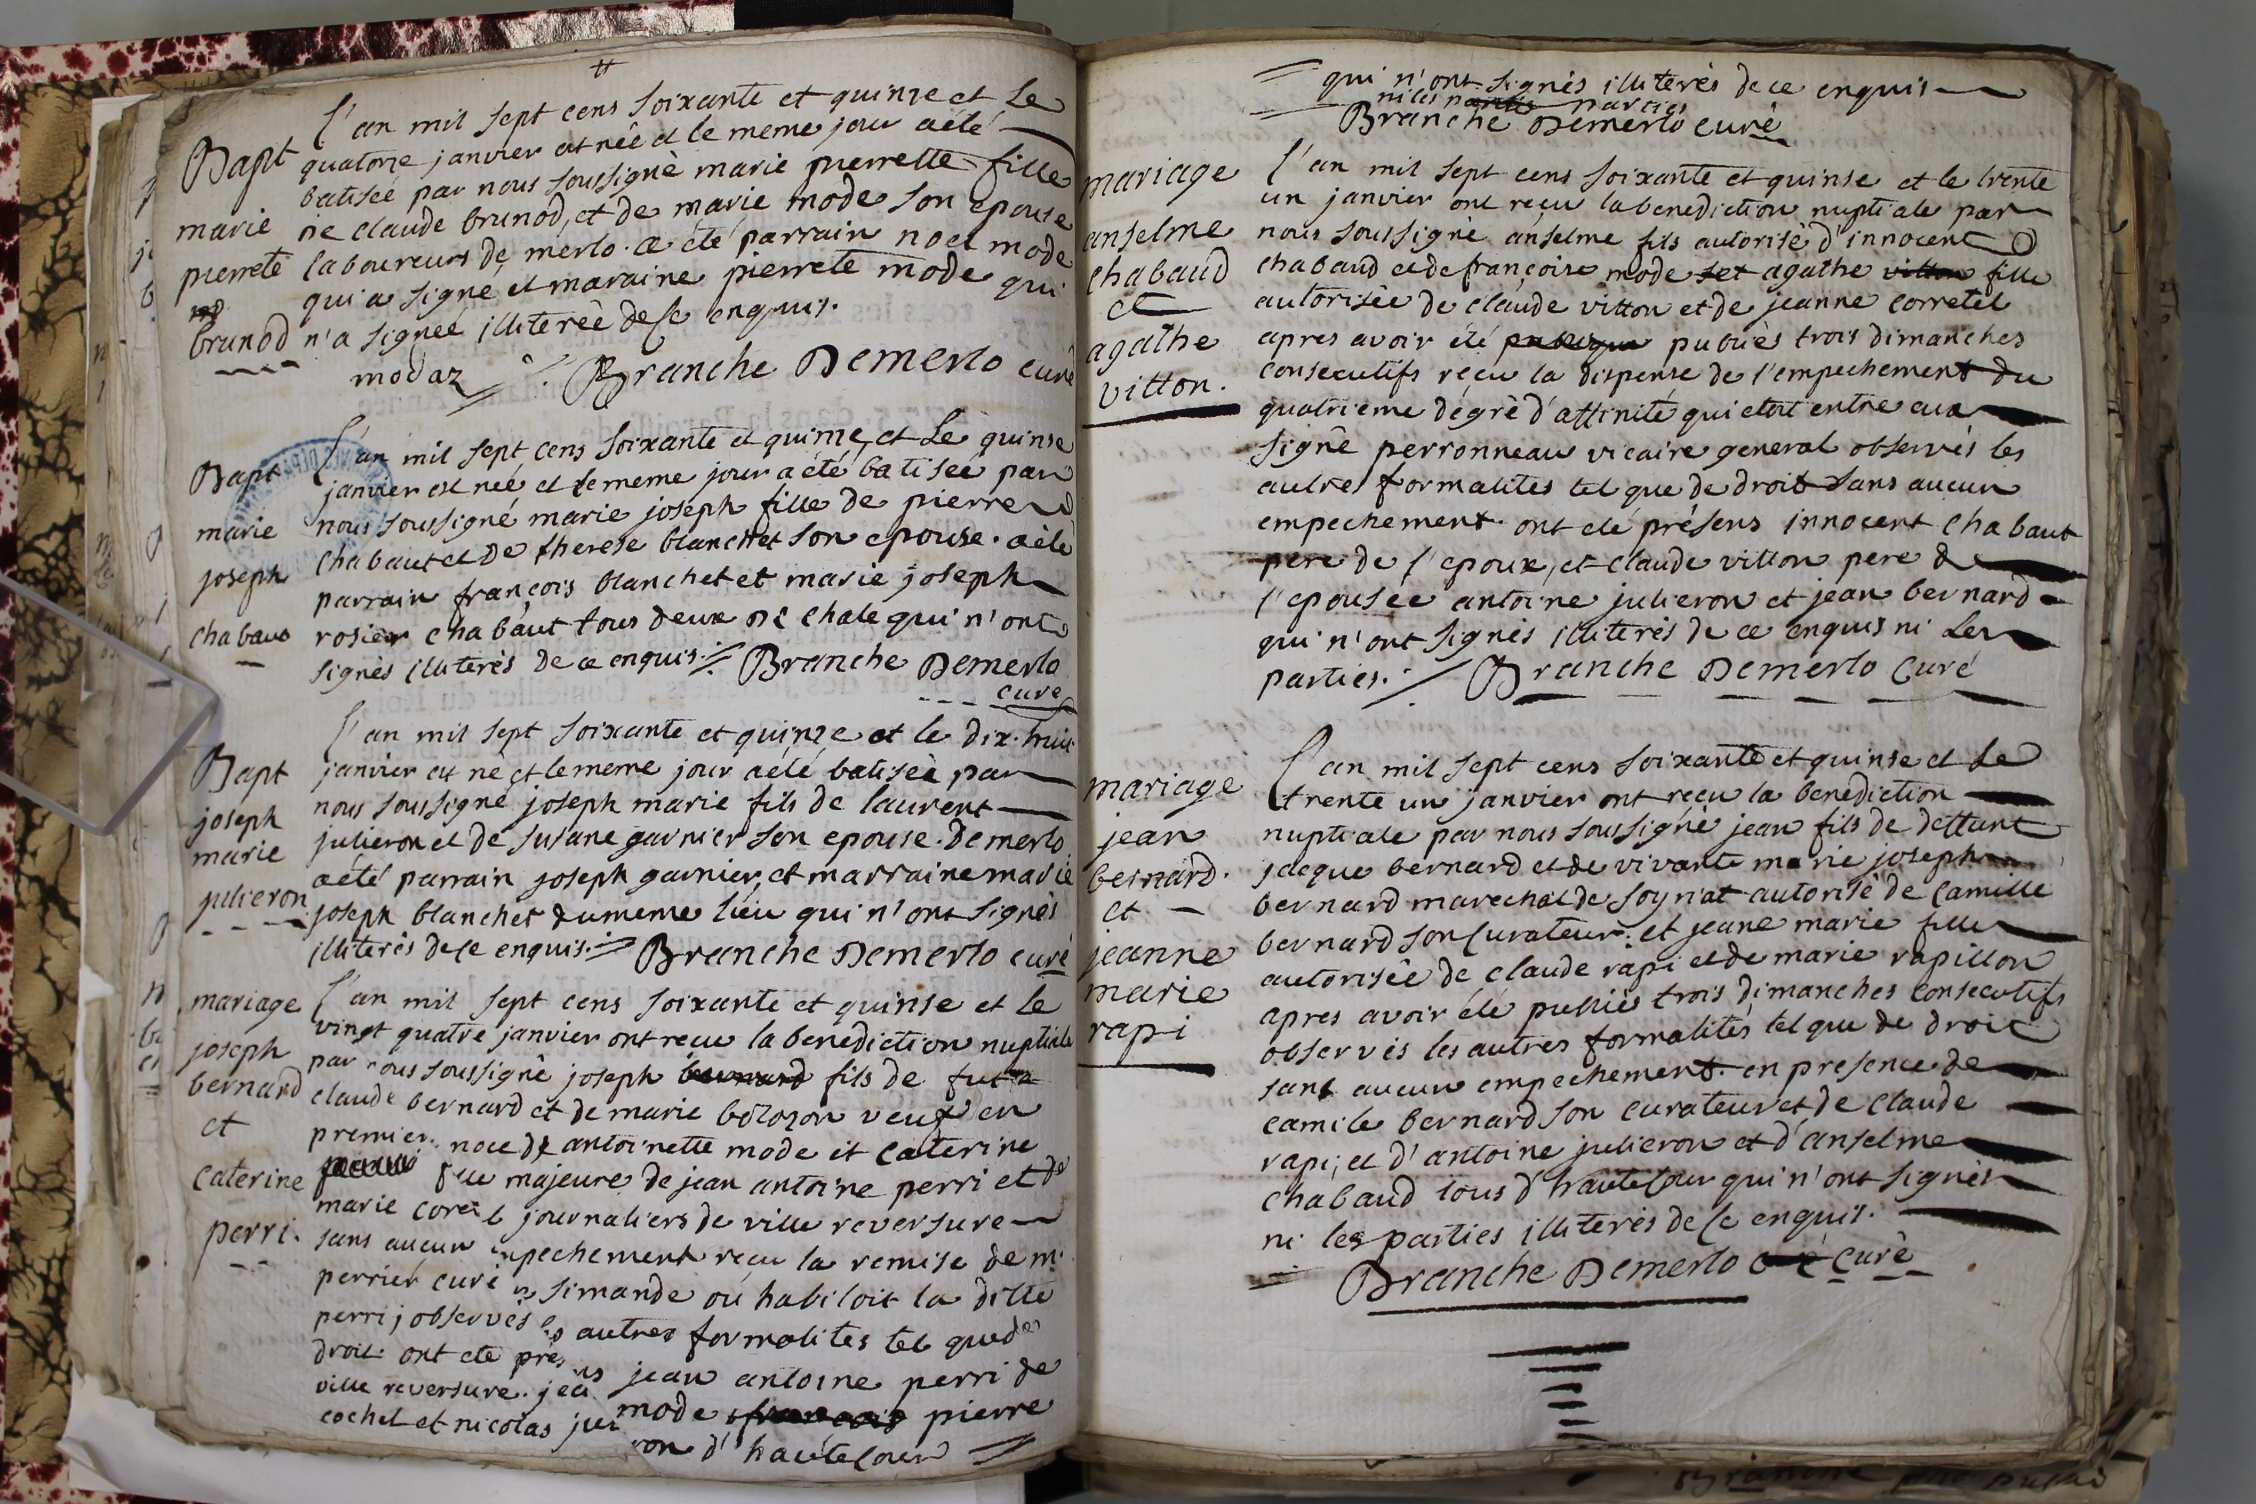 Bapt
marie
pierrete
brunod
L'an mil sept cens soixante et quinze et le
quatorze janvier est née et le meme jour a été
batiseé par nous soussigné marie pierrette fille
de claude brunod, et de marie mode son epouse
laboureurs de merlo. a été parrain noel mode
qui a signé et maraine pierrete mode qui
n'a signeé illitereé de ce enquis.
modaz Branche Demerlo curé
Bapt
marie
joseph
chabaud
L'an mil sept cens soixante et quinze, et le quinse
janvier est neé et le meme jour a été batiseé par
nous soussigné marie joseph fille de pierre
chabaut et de therese blanchet son epouse. a été
parrain françois blanchet et marie joseph
rosier chabaut tous deux de chale qui n'ont
signés illiterés de ce enquis. Branche Demerlo
curé
Bapt
joseph
marie
julieron
L'an mil sept soixante et quinze et le dix-huit
janvier est né et le meme jour a été batiseé par
nous soussigné joseph marie fils de laurent
julieron et de susane garnier son epouse. de merlo
a été parrain joseph garnier, et marraine marie
joseph blanchet du meme lieu qui n'ont signés
illiterés de ce enquis. Branche Demerlo curé
mariage
joseph
bernard
et
caterine
perri.
L'an mil sept cens soixante et quinse et le
vingt quatre janvier ont recu la benediction nuptiale
par nous soussigné joseph bernard fils de fut
claude bernard et de marie bolozon veuf en
premier noce de antoinette mode et caterine
fille majeure de jean antoine perri et de
marie corel journaliers de ville reversure
sans aucun empechement recu la remise de mr
perrier curé en simande où habitoit la ditte
perri j observés les autres formalites tel que de
droit. ont eté présens jean antoine perri de
ville reversure. jean mode françois pierre
cochet et nicolas julieron d'hautecour
qui n'ont signés illiterés de ce enquis
ni les parties parties
Branche Demerlo curé
mariage
anselme
chabaud
et
agathe
vitton.
L'an mil sept cens soixante et quinse et le trente
un janvier ont reçu la benediction nuptiale par
nous soussigné anselme fils autorisé d'innocent
chabaud et de françoise mode et agathe vitton fille
autoriseé de claude vitton et de jeanne corretel
apres avoir été publiés trois dimanches
consecutifs réçu la dispense de l'empechement du
quatrieme dégré d'affinité qui etoit entre eux
signé perronneau vicaire general observés les
autres formalites tel que de droit sans aucun
empechement. ont eté présens innocent chabaut
pere de l'epoux, et claude vitton pere de
l'epouseé antoine julieron et jean bernard
qui n'ont signés illiterés de ce enquis ni les
parties. Branche Demerlo Curé
mariage
jean
bernard.
et
jeanne
marie
rapi
L'an mil sept cens soixante et quinse et le
trente un janvier ont reçu la benediction
nuptiale par nous soussigné jean fils de deffunt
jacque bernard et de vivante marie joseph
bernard marechal de soynat autorisé de camille
bernard son curateur. et jeane marie fille
autoriseé de claude rapi et de marie rapillon
apres avoir été publiés trois dimanches consecutifs
observés les autres formalités tel que de droit
sans aucun empechement. en presence de
camile bernard son curateur et de claude
rapi, et d'antoine julieron et d'anselme
chabaud tous d'hautecour qui n'ont signés
ni les parties illiterés de ce enquis.
Branche Demerlo curé